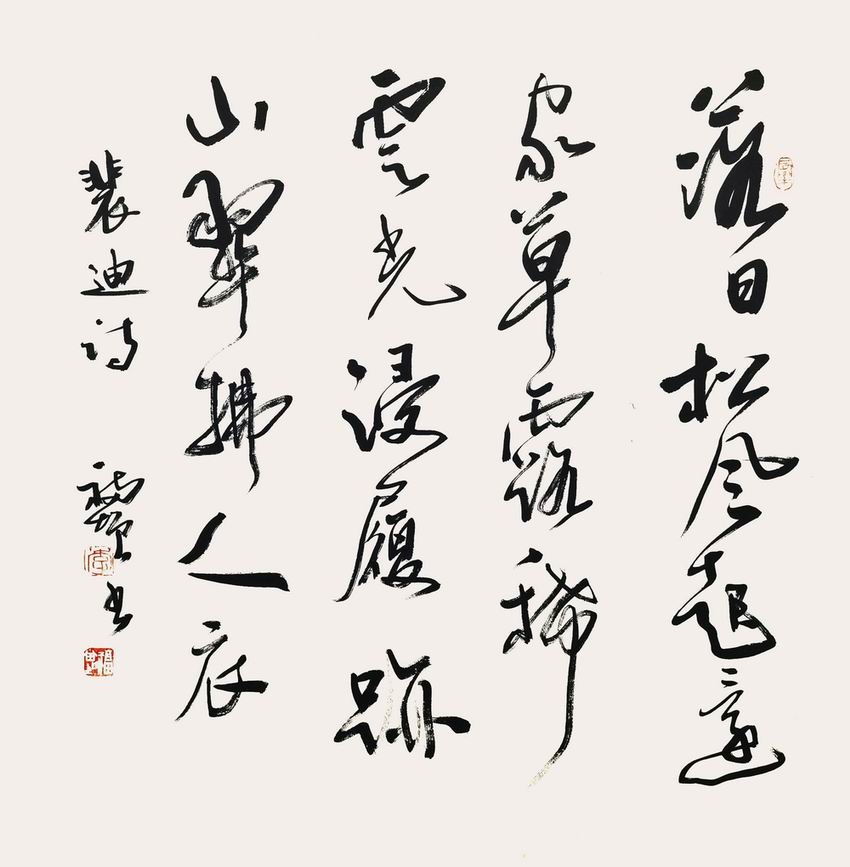 落日松风起還
家草露稀
雲光浸履跡
山翠拂人衣
裴迪诗 书